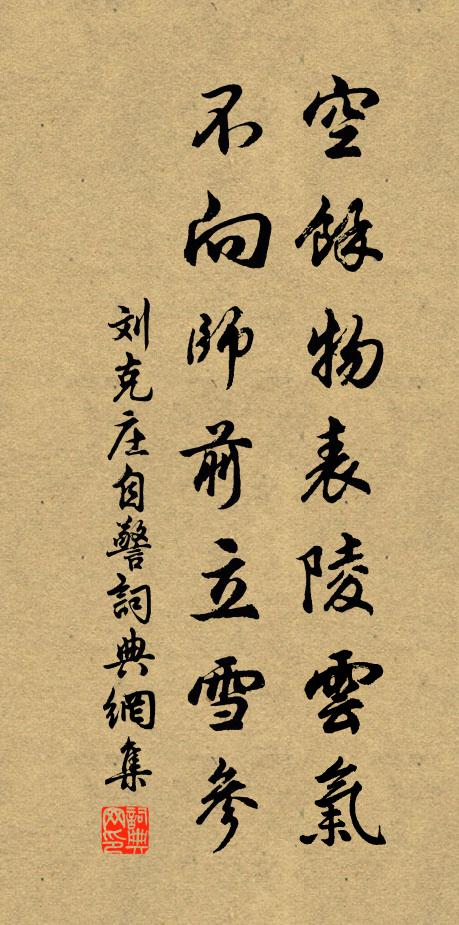 空餘物表陵雲氣
不向師前立雪參
刘克庄自警詞典網集
詞典网印